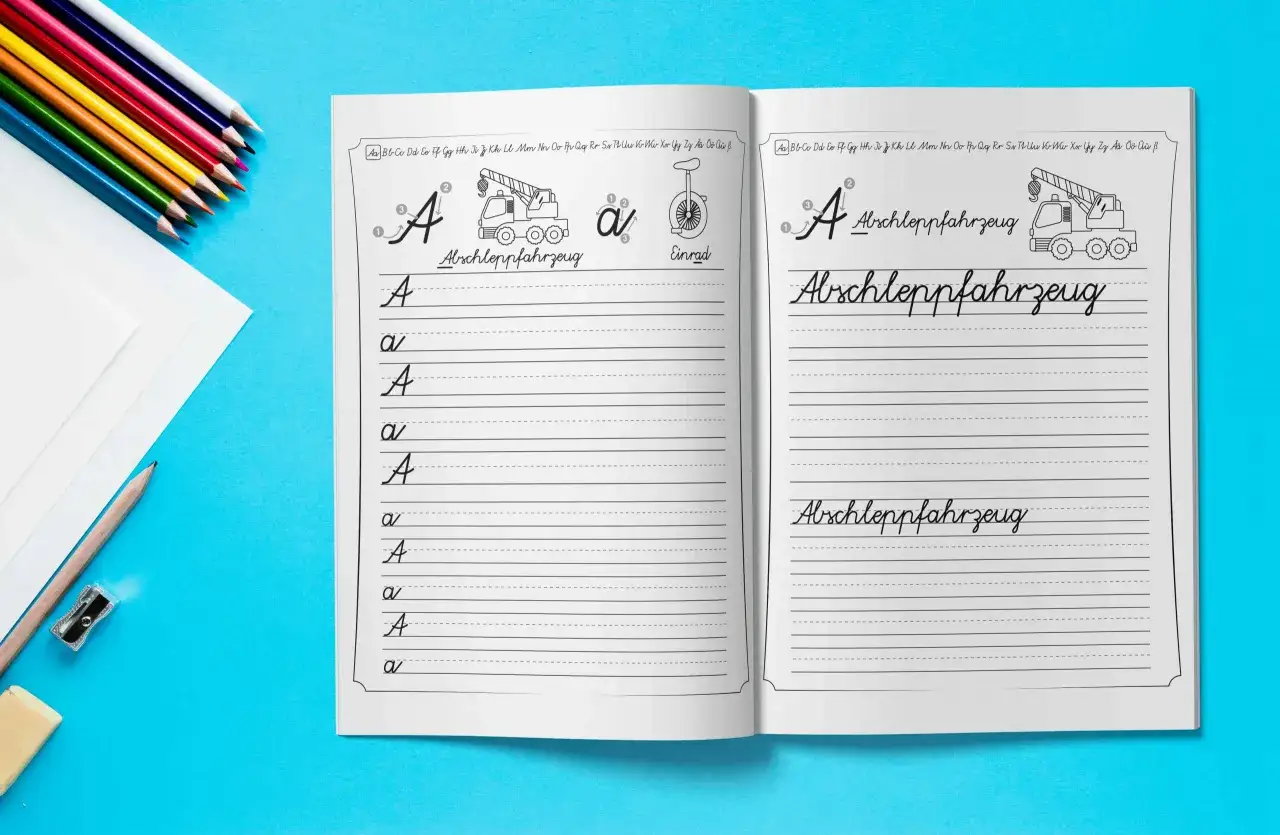 Aa Bb Cc Dd Ee Ff Gg Hh Ii Jj Kk Ll Mm Nn Oo Pp Qq Rr Ss Tt Uu Vv Ww Xx Yy Zz Ää Öö Üü ß
3 A 2
1
1 a 2
3
Abschleppfahrzeug
Einrad
A
a
A
a
A
a
A
a
A
a
Aa Bb Cc Dd Ee Ff Gg Hh Ii Jj Kk Ll Mm Nn Oo Pp Qq Rr Ss Tt Uu Vv Ww Xx Yy Zz Ää Öö Üü ß
3 A 2 Abschleppfahrzeug
1
Abschleppfahrzeug
Abschleppfahrzeug